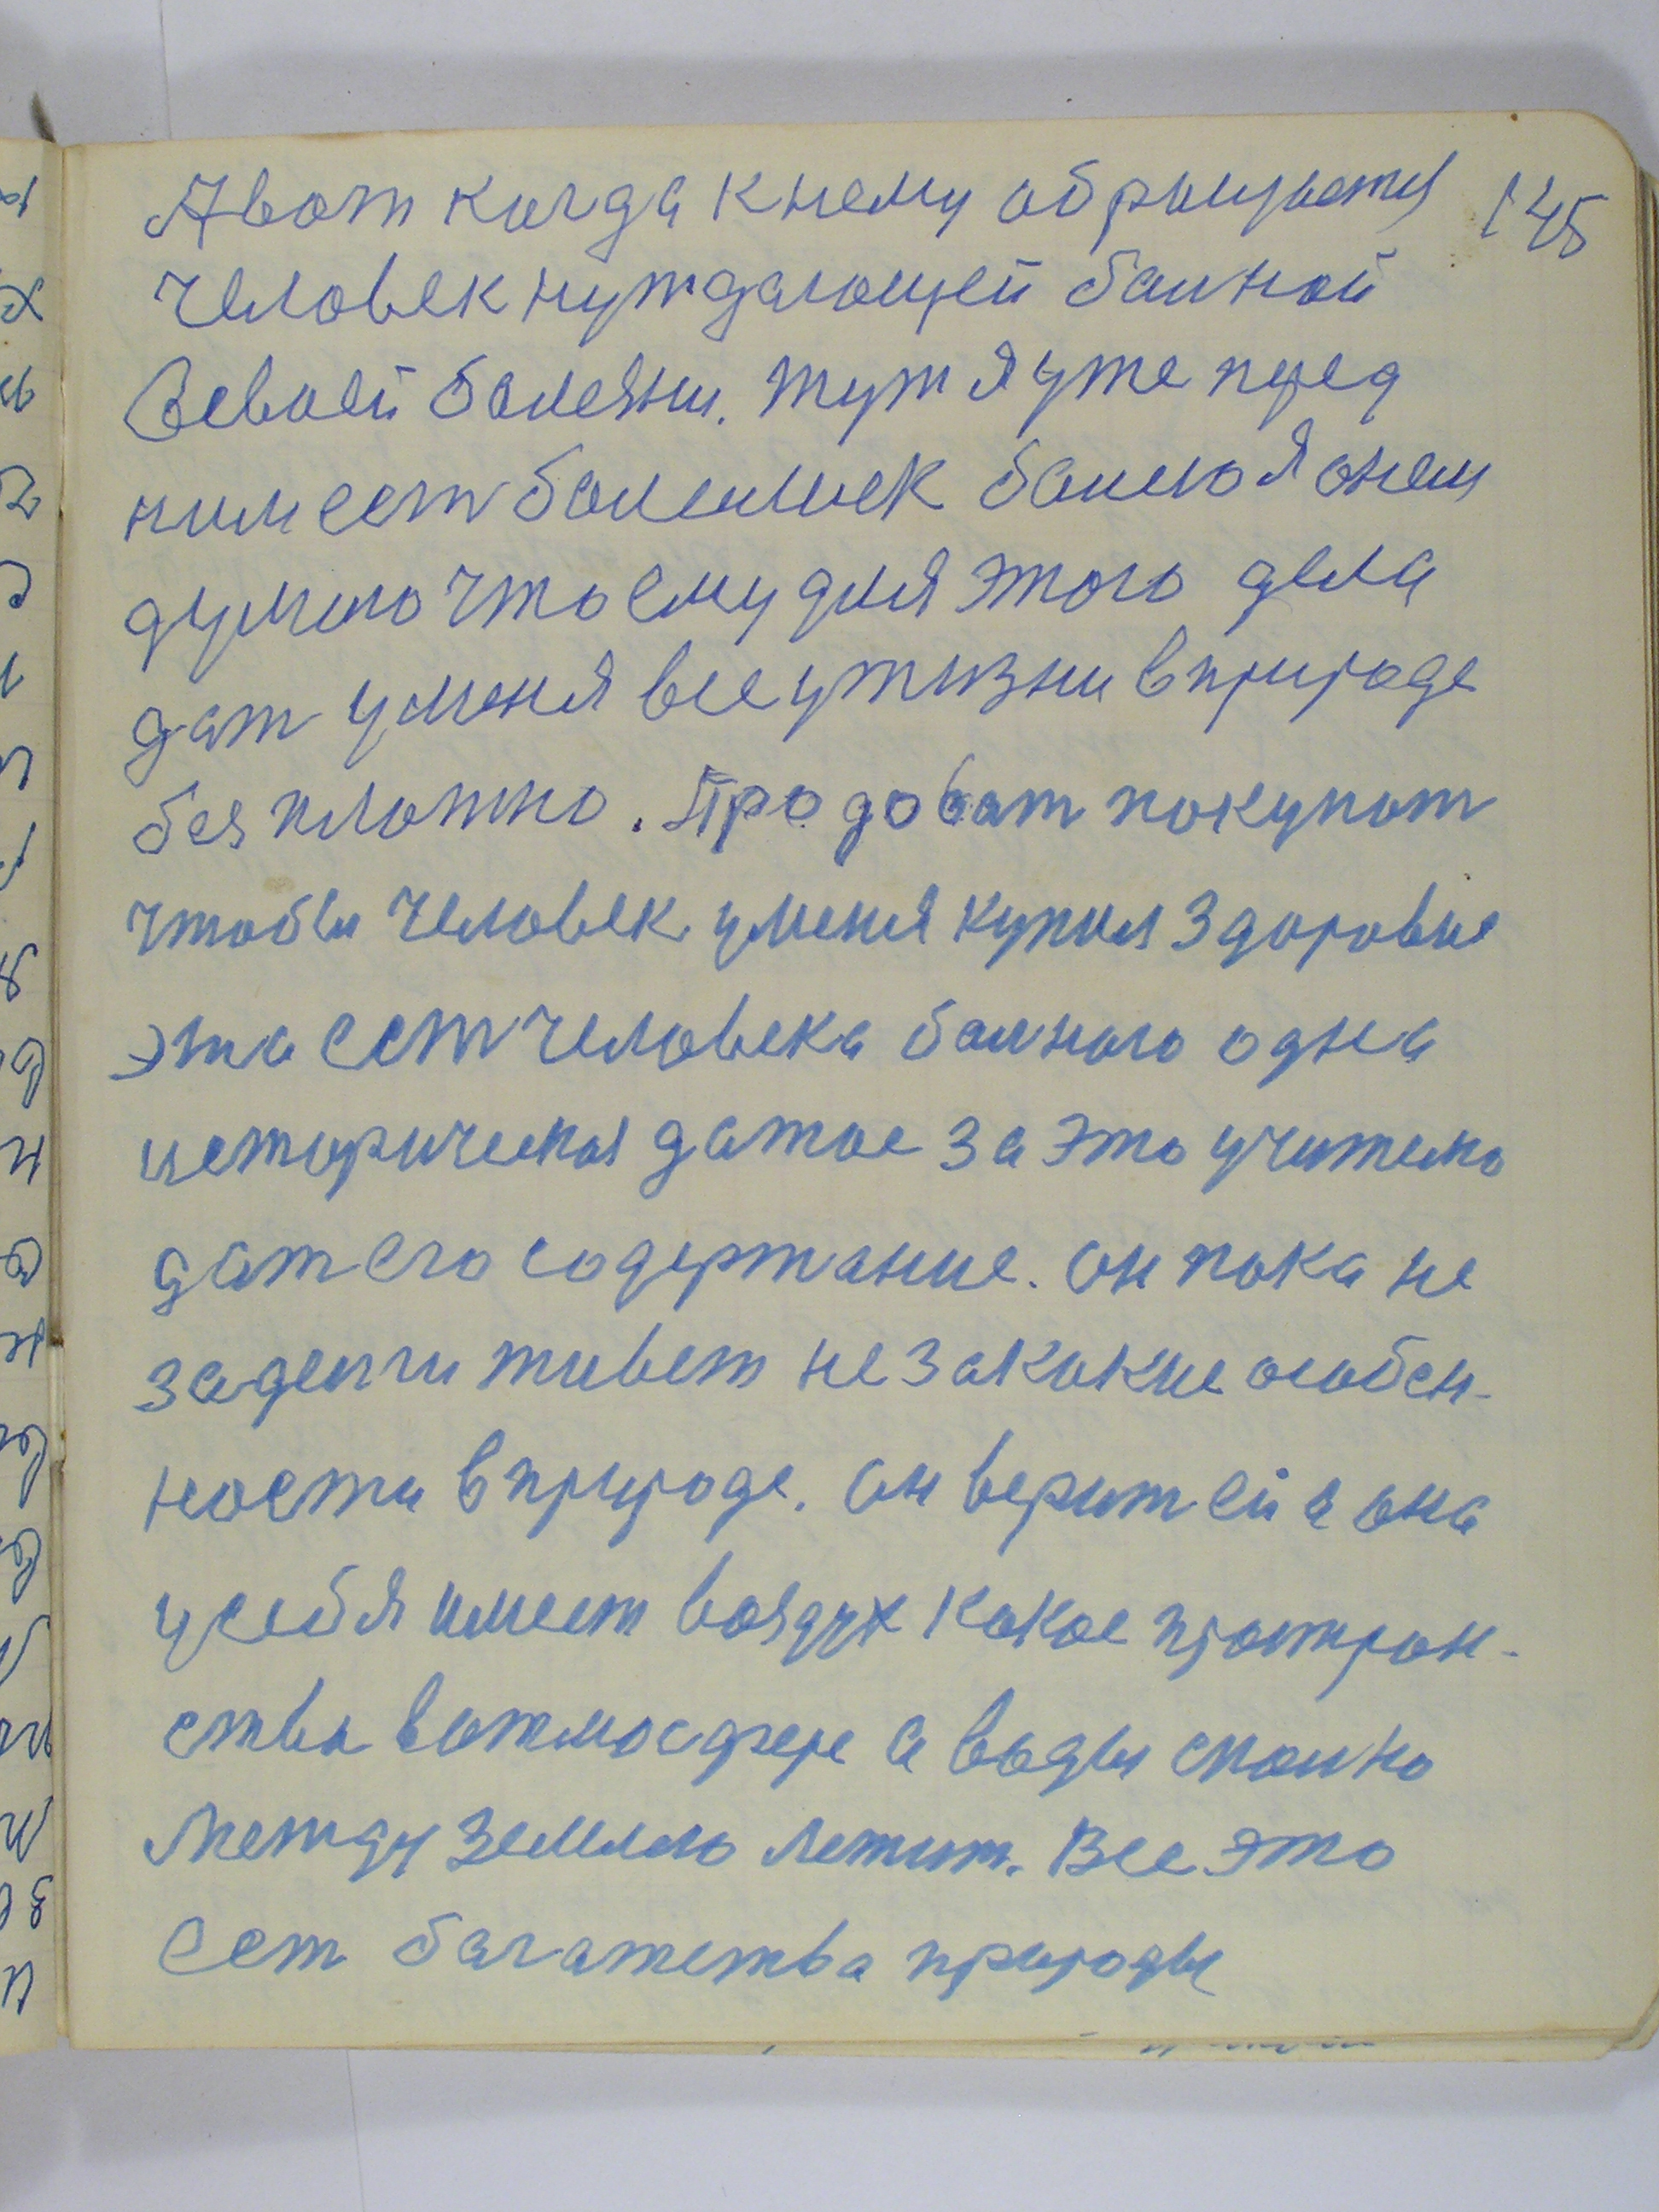 Авот когда к нему обращается 145
человек нуждающей балной
Севоей балезни. тут я уже перед
ним ест балельшек балею я о нем
думаю что ему для этого дела
дат у меня все у жизни в природе
без платно. Продоват покупат
чтобы человек у меня купил здоровие
эта ест человека балного одна
историческая датое за это учителю
дат его содержание. он пока не
за денги живет не закокие особен-
ности в природе. он верит ей а она
у себя имеет воздух какое простран-
ствы в атмосфере а воды сколко
между землею лежит. Все это
Ест багатства природы